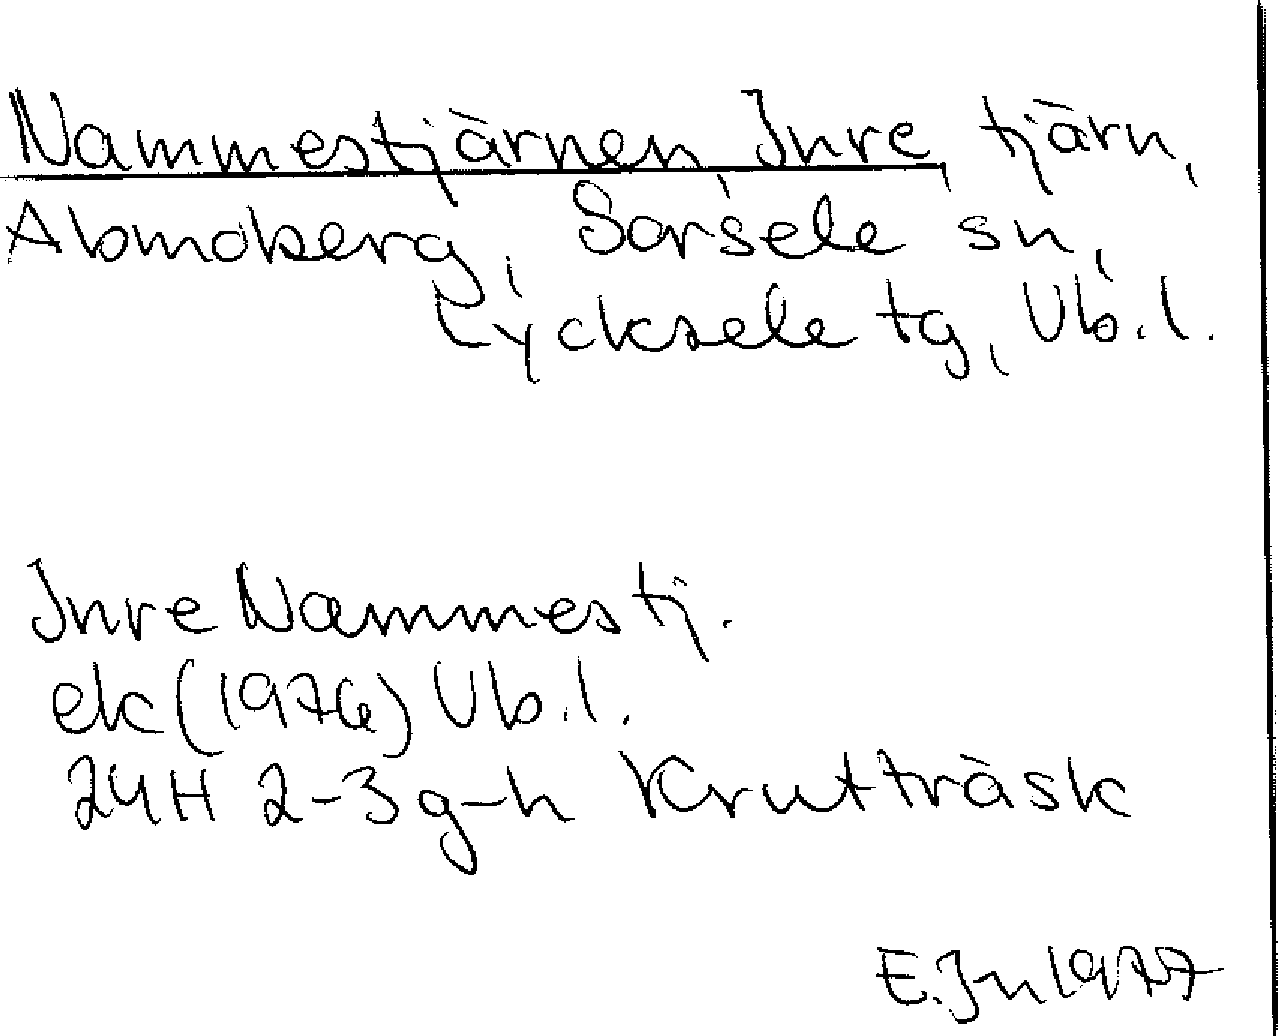 Nammestjärnen, Inre, tjärn,
Abmoberg, Sorsele sn,
Lycksele tg, Vb.l.
Inre Nammestj.
ek (1976) Vb.l.
24H 2-3 g-h Krutträsk
E.Jn 1977